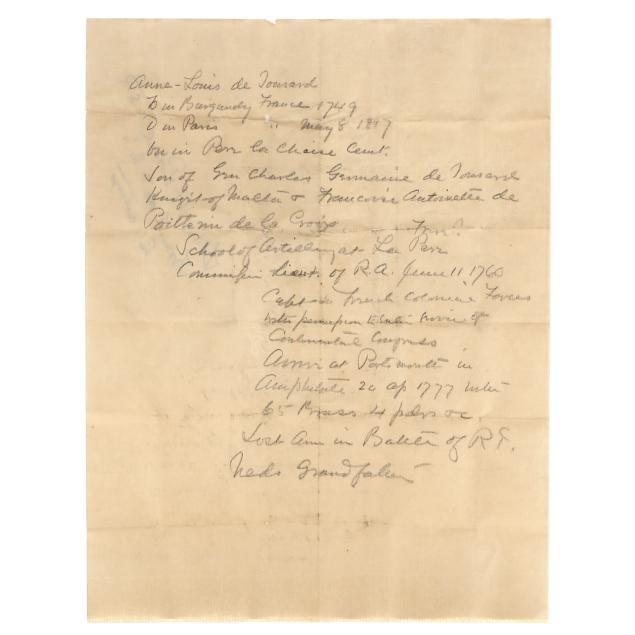 Anne-Louis de Tousard
B in Burgundy France 1749
D in Paris " May 8 1817
bu in Pere la Chaise Cemt.
Son of Gen Charles Germaine de Tousard
Knight of Malta & Francoise Antoinette de
Poitterin de la Croix
School of Artillery at La Fere
Lieut. of R.A. June 11 176
Capt in French Colonial Forces
with permission to enter service of
Continental Congress
Arriv at Portsmouth in
Amphitrite 20 ap 1777 with
65 Brass 4 pdrs &c.
Lost Arm in Battle of R I.
Neds Grandfather